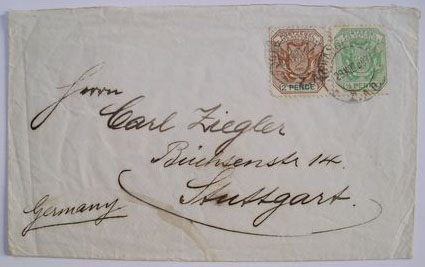 2 PENCE
Z.A.R.
Herrn
Carl Ziegler
Büchsenstr 14.
Stuttgart.
Germany